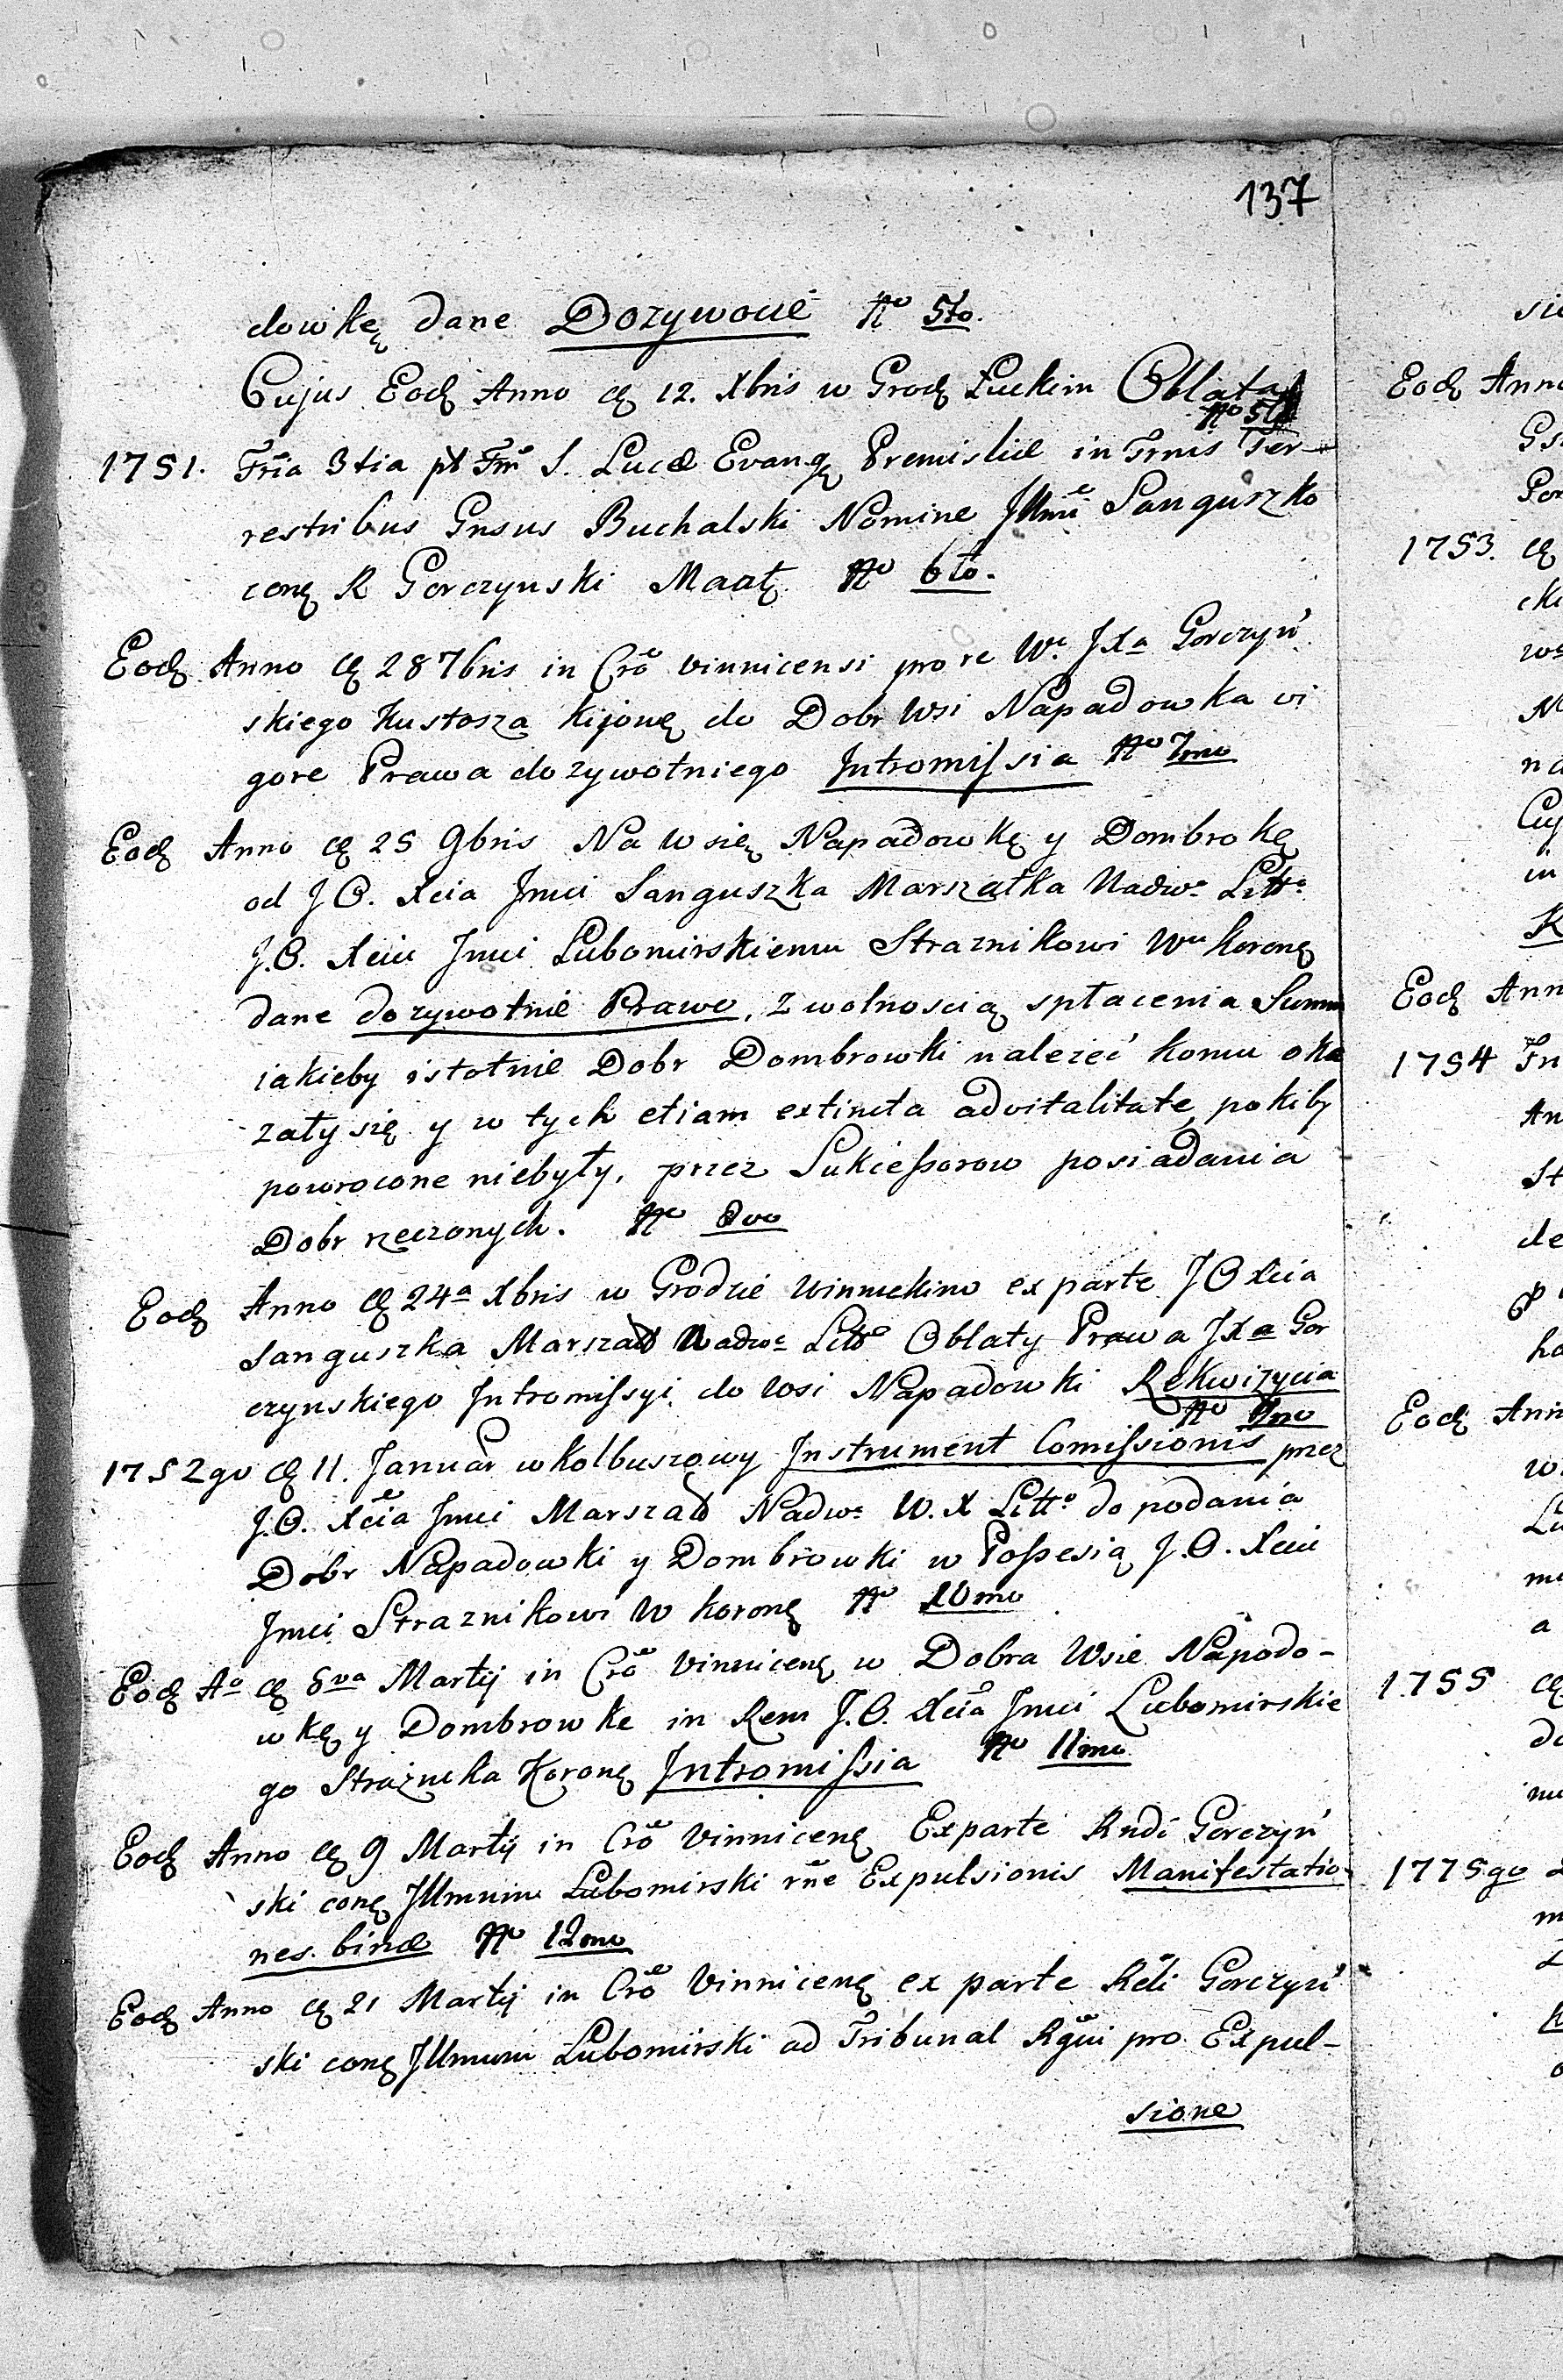 137
dowkę dane Dozywocie Nro 5to.
Cujus Eod Anno d 12. Xbris w Grod Łuckim Oblata
Nro 5to
1751. Fria 3tia pt Fm S. Lucæ Evang Premisliæ in Trnis Ter-
restribus Gnsus Buchalski Nomine Illmi Sanguszko
conę R Gorczynski Maat Nro 6to.
Eod Anno d 28 7bris in Cro vinnicensi pro re W. JXa Gorczyń
skiego Kustosza Kijowę do Dobr Wsi Napadowka vi
gore Prawa dozywotniego Intromissia Nro 7mo
Eod Anno d 25 9bris Na wsię Napadowkę y Dombrokę
od J O. Xcia Jmci Sanguszka Marszałka Nadwo Litto
J.O. Xciu Jmci Lubomirskiemu Straznikowi Wu koronę
dane dozywotnie Prawo, z wolnoscią spłacenia Summ
iakieby istotnie Dobr Dombrowki nalezeć komu oka
zały się y w tych etiam extincta advitalitate, pokiby
powrocone niebyły, przez Sukcessorow posiadania
Dobr rzeczonych. Nro 8vo
Eod Anno d 24a Xbris w Grodzie winnickim ex parte J O Xcia
Sanguszka Marszał Nadwo Litto Oblaty Prawa JXa Gor
czynskiego Intromissyi do wsi Napadowki Rekwizycia
Nro 9no
1752go d 11. Januar w Kolbuszowy Instrument Comissionis przez
J.O. Xcia Jmci Marszał Nadwo W. X Litto do podania
Dobr Napadowki y Dombrowki w Possesią J.O. Xciu
Jmci Straznikowi W koronę Nro 10mo
Eod Ao d 8va Martij in Cro Vinnicenę w Dobra Wsie Napodo-
wkę y Dombrowke in Rem J.O. Xcia Jmci Lubomirskie
go Straznika Koronę Intromissia Nro 11mo
Eod Anno d 9 Martij in Cro Vinnicenę Exparte Rndi Gorczyń
ski conę Illmnm Lubomirski rne Expulsionis Manifestatio-
nes. binæ Nro 12mo
Eod Anno d 21 Martij in Cro Vinnicenę ex parte Rdi Gorczyń
ski conę Illmum Lubomirski ad Tribunal Rgni pro Expul-
sione
Eod Anno
1753. d
Eod Ann
1754
Eod Ann
1755
1775go